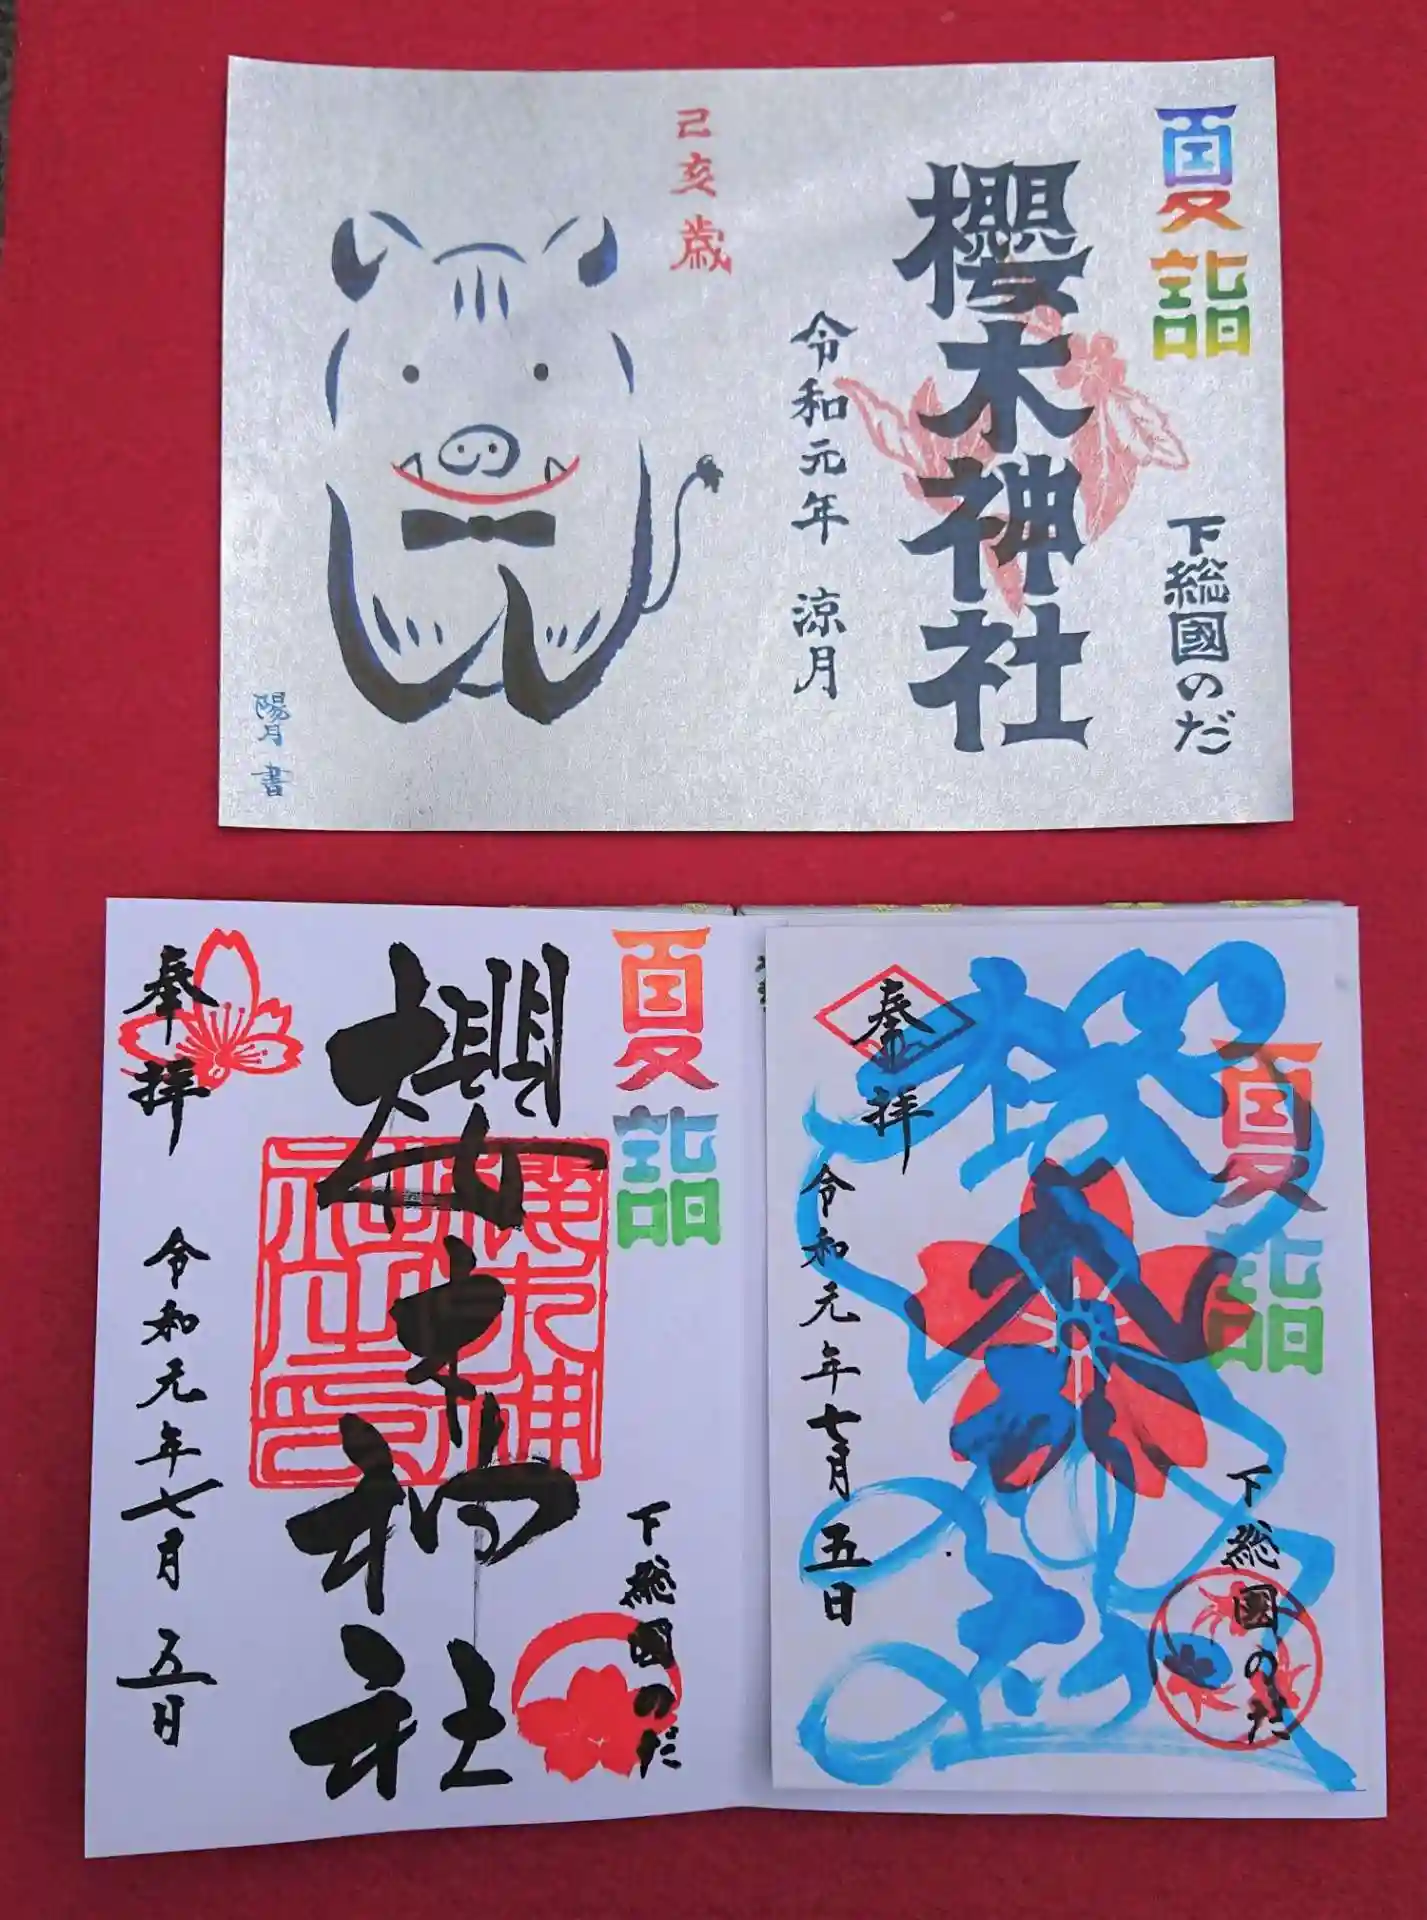 夏詣
下総國のだ
櫻木神社
令和元年 涼月
己亥歳
陽月 書
夏詣
下総國のだ
櫻木神社
奉拝 令和元年七月五日
夏詣
下総國のだ
櫻木神社
奉拝
令和元年七月五日